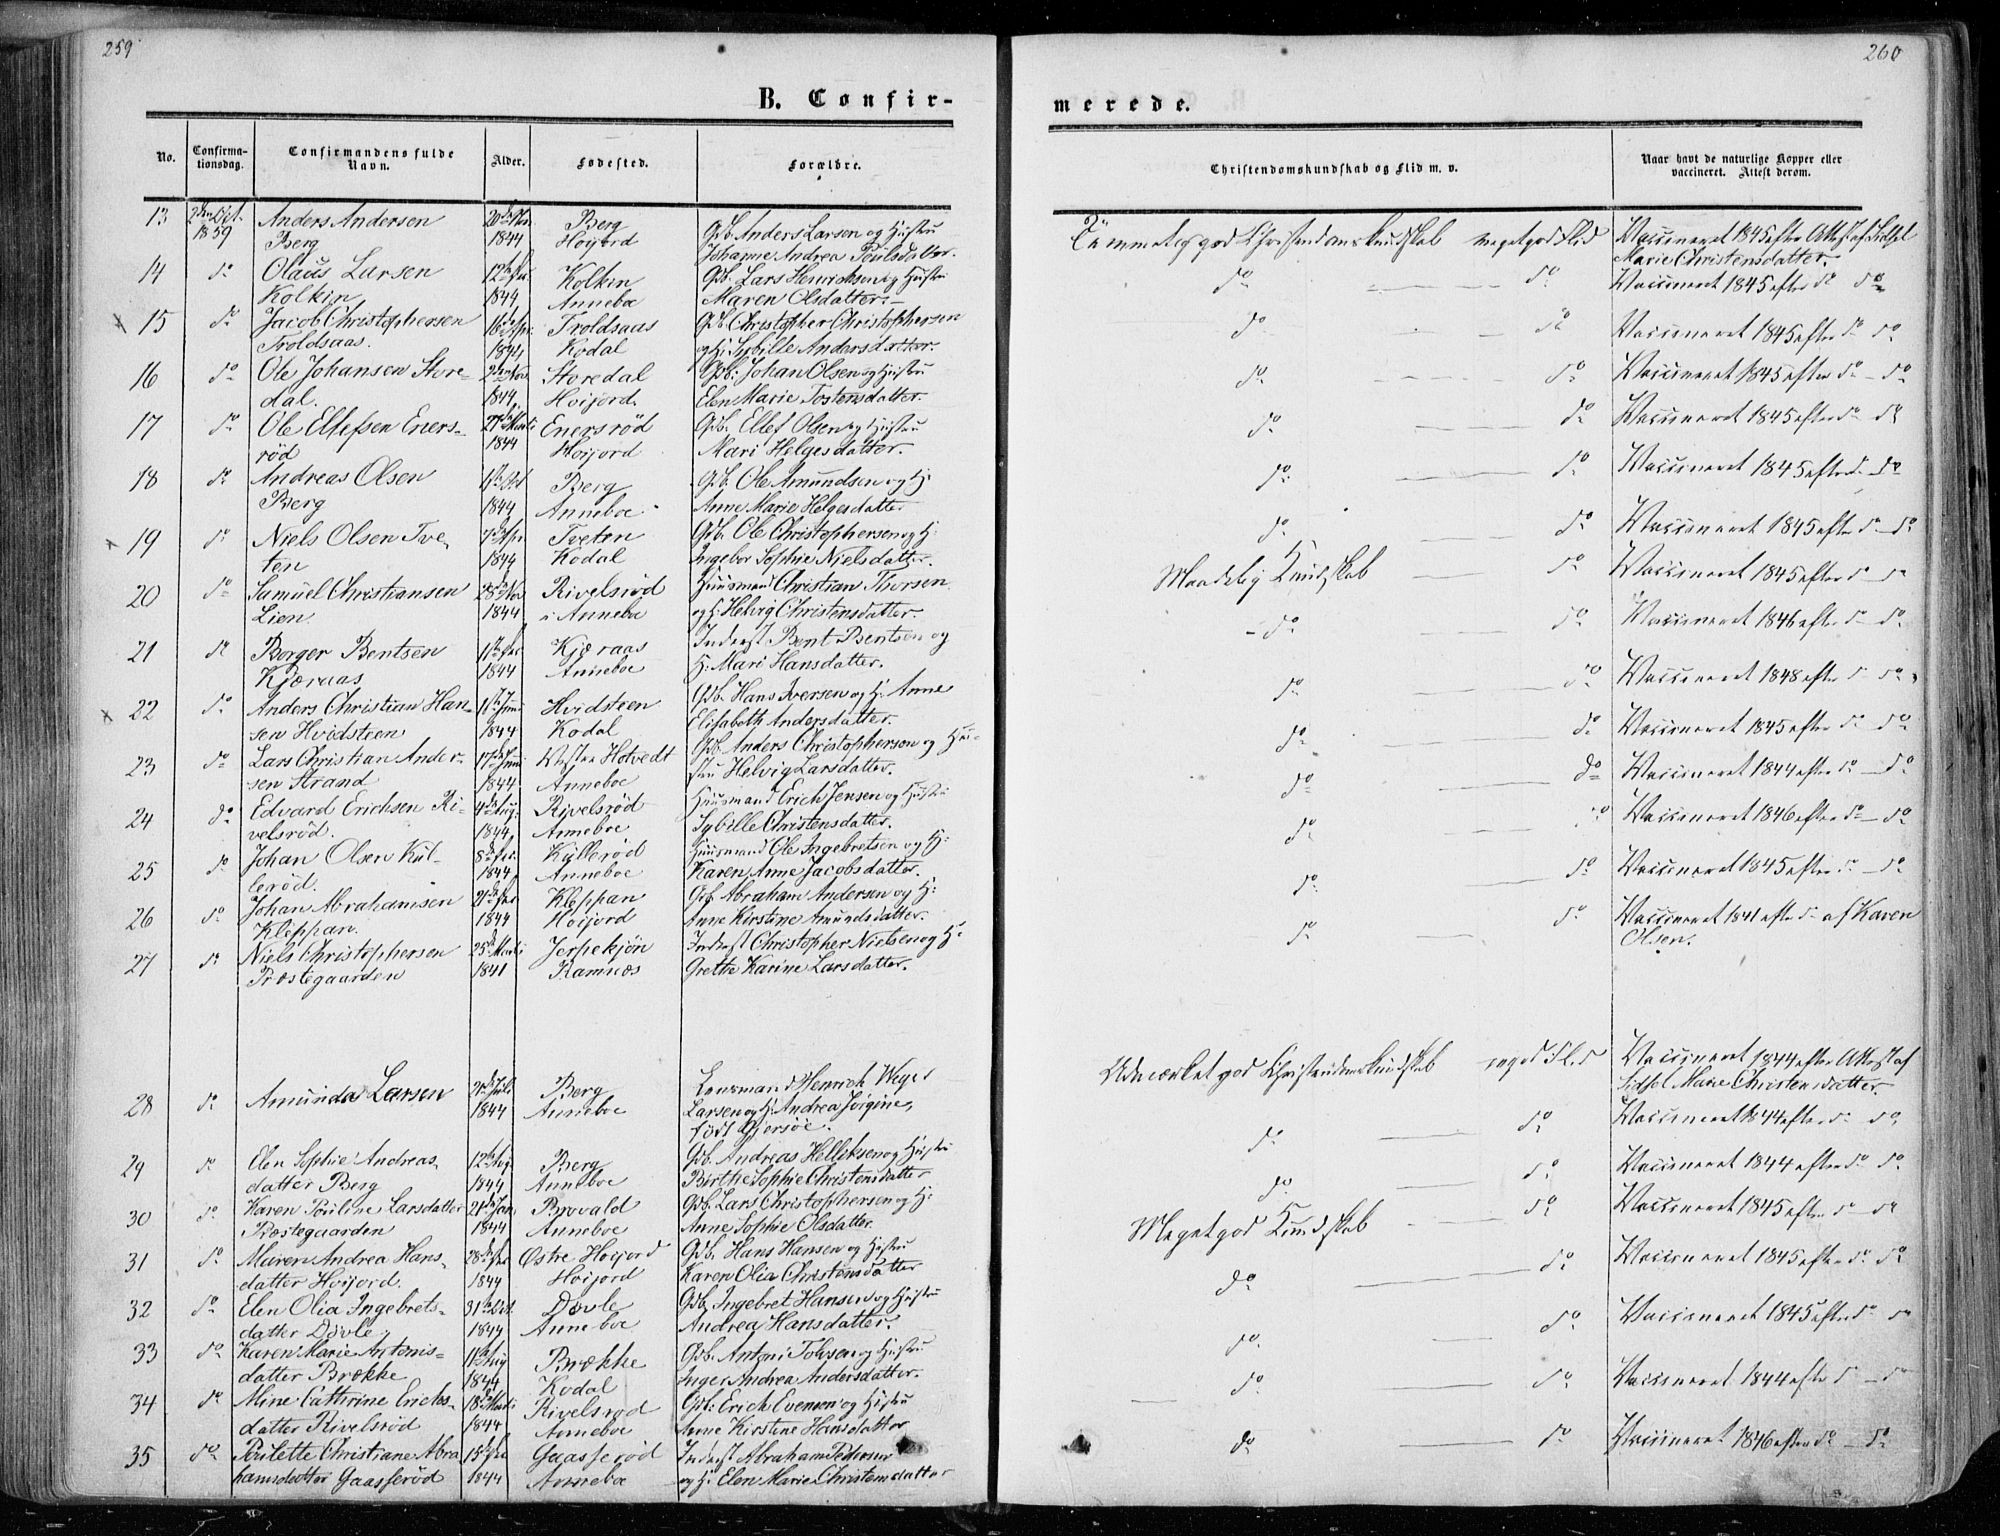 259
260
B. Confir-
merede.
No.
Confirma-
tionsdag.
Confirmandens fulde
Navn.
Alder.
Fødested.
Forældre.
Christendomskundskab og Flid m. v.
Naar havt de naturlige Kopper eller
vaccineret. Attest derom.
13 2den Oct. 1859 Anders Andersen Berg 1844 Berg Hoijord Gdb. Anders Larsen og Hustru Johanne Andrea Poulsdatter. Temmelig god Christendomskundskab meget god Flid Vaccineret 1845 efter Attest af Sidsel Marie Christensdatter.
14 do Olaus Larsen Kolkin 1844 Kolkin Anneboe Gdb. Lars Henrichsen og Hustru Maren Olsdatter. do do Vaccineret 1845 efter do do
15 do Jacob Christophersen Troldsaas. 1844 Troldsaas Kodal Gdb. Christopher Christophersen og H: Sybille Andersdatter. do do Vaccineret 1845 efter do do
16 do Ole Johansen Store- dal. 2den Nov 1844 Storedal Hoijord Gdb. Johan Olsen og Hustru Elen Marie Tostensdatter. do do Vaccineret 1845 efter do do
17 do Ole Ellefsen Eners- rød 1844 Enersrød Hoijord Gdb. Ellef Olsen og Hustru Mari Helgesdatter. do do Vaccineret 1845 efter do do
18 do Andreas Olsen Berg 1844 Berg Anneboe Gdb. Ole Amundsen og H: Anne Marie Helgesdatter do do Vaccineret 1845 efter do do
19 do Niels Olsen Tve- ten 1844 Tveten Kodal Gdb. Ole Christophersen og H: Ingebor Sophie Nielsdatter. do do Vaccineret 1845 efter do do
20 do Samuel Christiansen Lien 28de Nov 1844 Rivelsrød i Anneboe Huusmand Christian Thorsen og H: Helvig Christensdatter. Maadelig Kundskab do Vaccineret 1845 efter do do
21 do Borger Bentsen Kjæraas 1844 Kjæraas Anneboe Inderst Bent Bentsen og H: Mari Hansdatter. do do Vaccineret 1846 efter do do
22 do Anders Christian Han- sen Hvidsteen 1844 Hvidsteen Kodal Gdb. Hans Iversen og H: Anne Elisabeth Andersdatter. do do Vaccineret 1848 efter do do
23 do Lars Christian Ander- sen Strand 17de Juni 1844 Vestre Hotvedt Anneboe Gdb. Anders Christophersen og Hu- stru Helvig Larsdatter. do do Vaccineret 1845 efter do do
24 do Edvard Erichsen Ri- velsrød. 4de Aug. 1844 Rivelsrød Anneboe Huusmand Erich Jensen og Hustru Sybille Christensdatter. do do Vaccineret 1844 efter do do
25 do Johan Olsen Kul- lerød. 1844 Kullerød Anneboe Huusmand Ole Ingebretsen og H: Karen Anne Jacobsdatter. do do Vaccineret 1846 efter do do
26 do Johan Abrahamsen Kleppan. 1844 Kleppan Hoijord Gdb. Abraham Andersen og H: Anne Kirstine Amundsdatter. do do Vaccineret 1845 efter do do
27 do Niels Christophersen Præstegaarden 25de Marti 1841 Jerpekjøn Ramnæs Inderst Christopher Nielsen og H: Grethe Karine Larsdatter. do do Vaccineret 1841 efter do af Karen Olsen.
28 do Amunda Larsen 1844 Berg Anneboe Lensmand Henrich Weger Larsen og H: Andrea Jørgine, født Gjersøe. Udmærket god Christendomskundskab og god Flid Vaccineret 1844 efter Attest af Sidsel Marie Christensdatter.
29 do Elen Sophie Andreas- datter Berg 12te Aug. 1844 Berg Anneboe Gdb. Andreas Helliksen og Hustru Birthe Sophie Christensdatter do do Vaccineret 1844 efter do do
30 do Karen Pouline Larsdatter Præstegaarden 21de Jan. 1844 Brovald Anneboe Gdb. Lars Christophersen og H: Anne Sophie Olsdatter. do do Vaccineret 1844 efter do do
31 do Maren Andrea Hans- datter Hoijord. 1844 Østre Hoijord Hoijord Gdb. Hans Hansen og Hustru Karen Olia Christensdatter Meget god Kundskab do Vaccineret 1845 efter do do
32 do Elen Olia Ingebrets- datter Døvle. 31te 1844 Døvle Anneboe Gdb. Ingebret Hansen og Hustru Andrea Hansdatter. do do Vaccineret 1845 efter do do
33 do Karen Marie Antonis- datter Brække 11te Aug 1844 Brække Kodal Gdb. Antoni Tolvsen og Hustru Inger Andrea Andersdatter. do do Vaccineret 1845 efter do do
34 do Mine Cathrine Erichs- datter Rivelsrød 18de Marti 1844 Rivelsrød Anneboe Gdb. Erich Evensen og Hustru Anne Kirstine Hansdatter do do Vaccineret 1844 efter do do
35 do Paulette Christiane Abra hamsdatter Gaasserød 1844 Gaasserød Anneboe Inderst Abraham Pedersen og H: Elen Marie Christensdatter do do Vaccineret 1846 efter do do